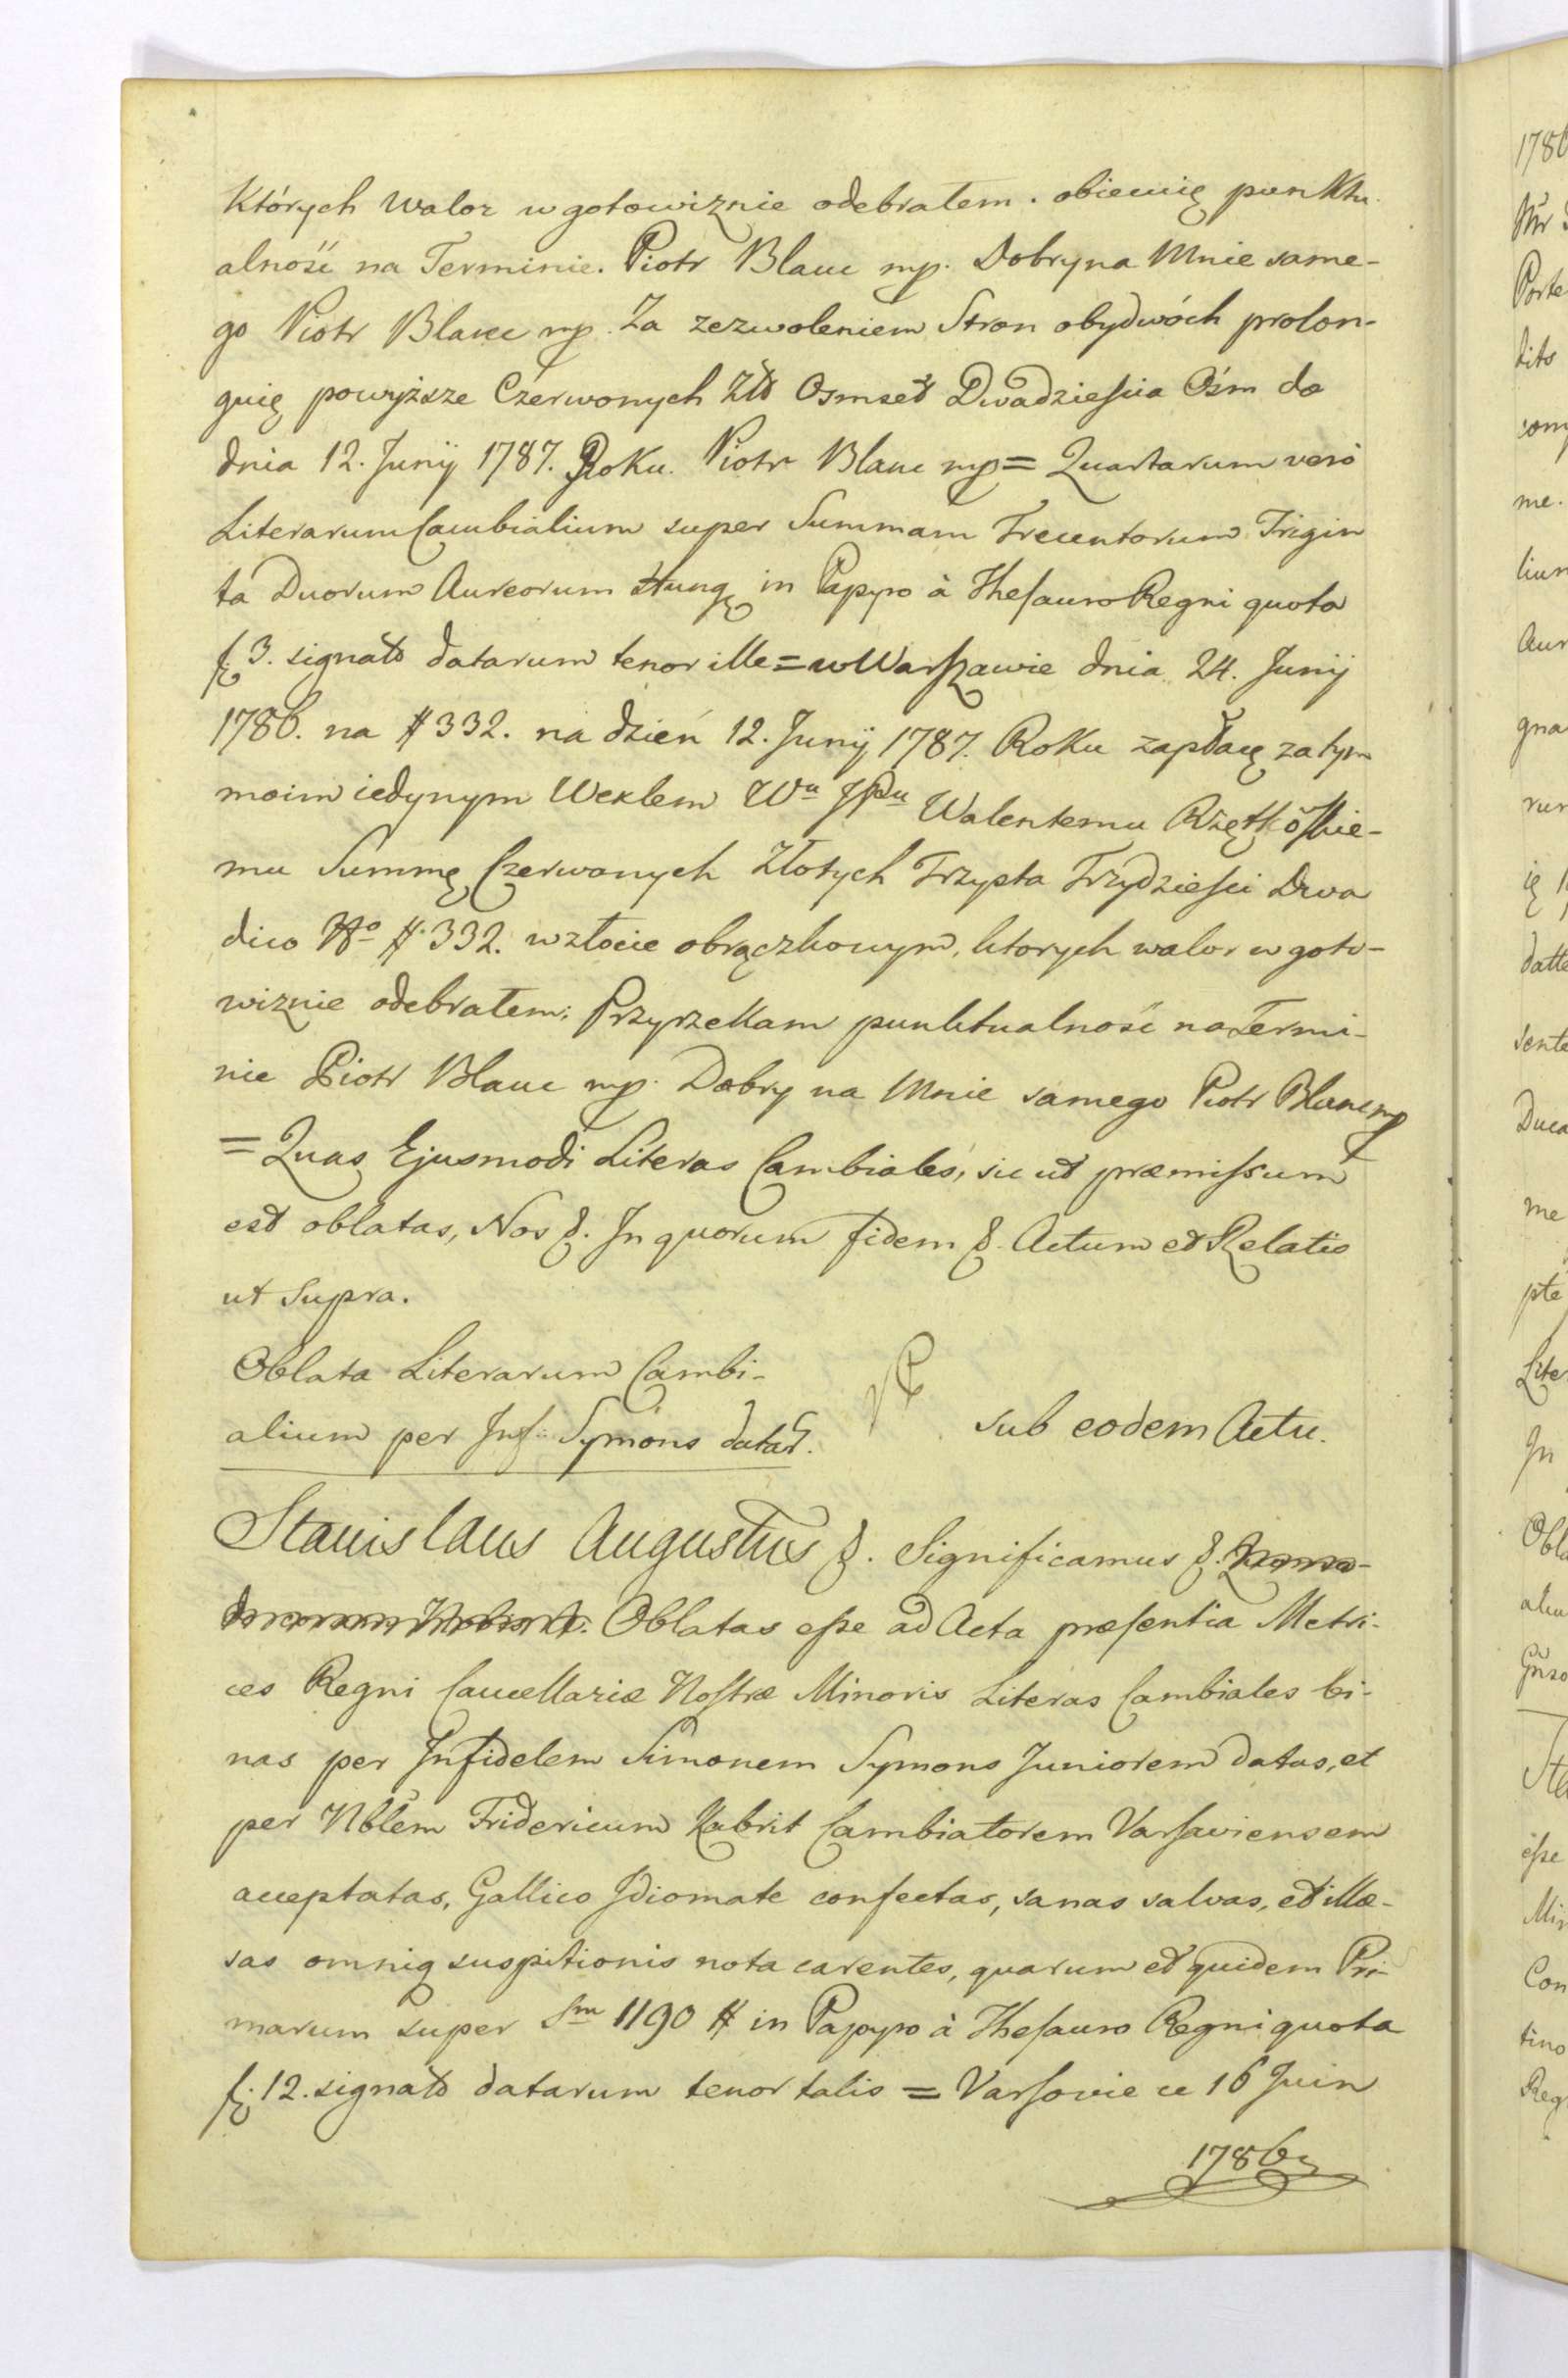 Których walor w gotowiznie odebrałem. obiecuię punktu-
alność na Terminie. Piotr Blanc mp. Dobry na Mnie same-
go Piotr Blanc mp. Za zezwoleniem Stron obydwóch prolon-
guię powyższe Czerwonych Złł Osmset Dwadzieścia Ośm do
dnia 12. Junÿ 1787. Roku. Piotr Blanc mp = Quartarum verò
Literarum Cambialium super Summam Trecentorum Trigin
ta Duorum Aureorum Hung in Papyro à Thesauro Regni quota
f. 3. signato datarum tenor ille = w Warszawie dnia 24. Junÿ
1786. na # 332. na dzień 12. Junÿ 1787. Roku zapłacę za tym
moim iedynym Wexlem Wu JPu Walentemu
mu Summę Czerwonych Złotych Trzysta Trzydzieści Dwa
dico No # 332. w złocie obrączkowym, ktorych walor w goto-
wiznie odebrałem: Przyrzekam punktualność na Termi-
nie Piotr Blanc mp. Dobry na Mnie samego Piotr Blanc mp
= Quas Ejusmodi Literas Cambiales, sic ut præmissum
est oblatas, Nos &. In quorum fidem &. Actum et Relatio
ut supra.
Oblata Literarum Cambi-
alium per Inf: Symons datar.
sub eodem Actu.
Stanislaus Augustus &. Significamus &.
Oblatas esse ad Acta præsentia Metri-
ces Regni Cancellariæ Nostræ Minoris Literas Cambiales bi-
nas per Infidelem Simonem Symons Juniorem datas, et
per Nblem Fridericum Kabrit Cambiatorem Varsaviensem
acceptatas, Gallico Idiomate confectas, sanas salvas, et illæ-
sas omniq suspitionis nota carentes, quarum et quidem Pri-
marum super Sm 1190 # in Papyro à Thesauro Regni quota
f. 12. signato datarum tenor talis = Varsovie ce 16 Juin
1786